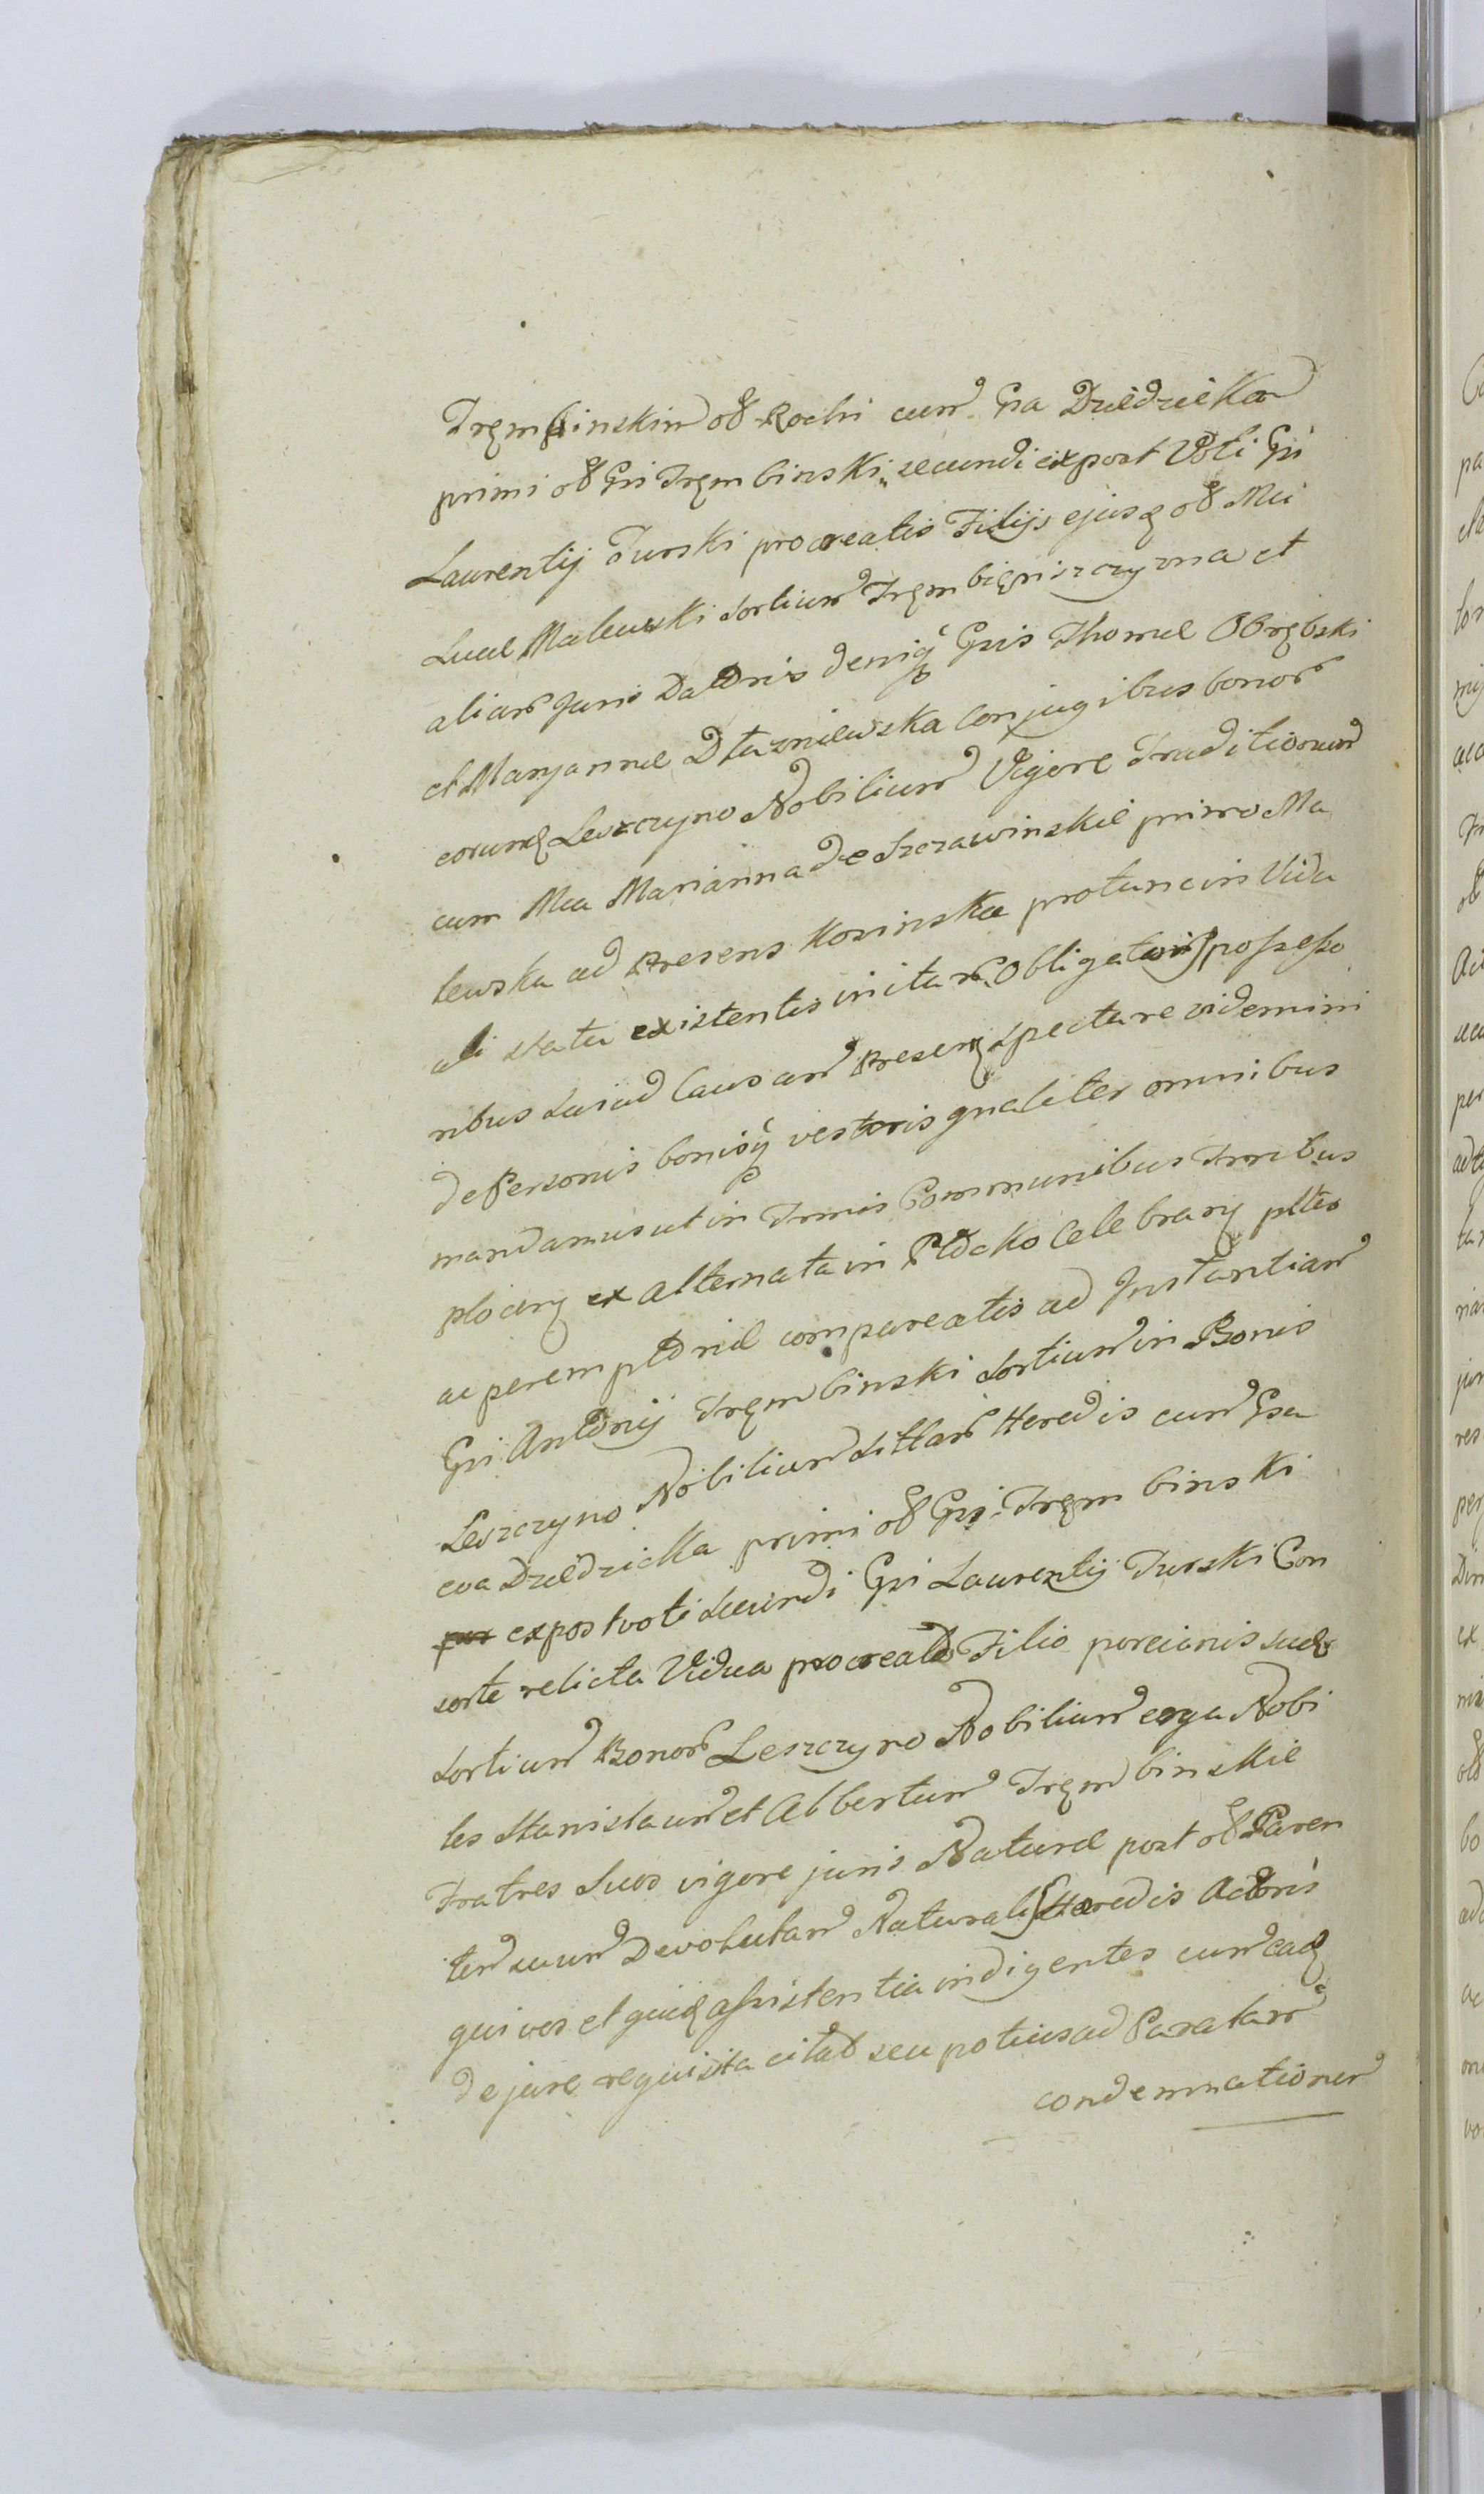 Trembinskim ol Rochi cum Gsa Dziedzicka
primi ol Gsi Trembinski, secundi expost Voti Gsi
Laurentij Turski procreatis Filijs ejusq ol Mci
Lucae Malewski sortium Trembieniszczyzna et
aliar Juris Datoris deniq Gsis Thomae Obrębski
et Maryannae Dłuzniewska Conjugibus bonor
eorumq Leszczyno Nobilium Vigore Traditionum
cum Mca Marianna de Szczawinskie primo Ma
lewska ad Presens Kosinska protunc in Vidu
ali statu existentis initar Obligatorijs possesso
ribus Lasad Causam Presen spectare videmini
de Personis bonisq vestoris gnaliter omnibus
mandamus ut in Trmis Communibus Trribus
plocen ex alternata in Płocko Celebran pltes
ac peremptorie compareatis ad Instantiam
Gsi Antonij Trembinski Sortium in Bonis
Leszczyno Nobilium sittar Heredis cum Gsa
Eva Dziedzicka primi ol Gsi Trembinski
expost voti Secundi Gsi Laurentij Turski Con
sorte relicta Vidua procreato Filio porcionis suae
Sortium Bonor Leszczyno Nobilium erga Nobi
les Stanislaum et Albertum Trembinskie
Fratres Suos vigore juris Naturae post ol Paren
tem suum Devolutam Naturalis Heredis Actoris
qui vos et quid assistentia indigentes cum eaq
de jure requisita citat seu potius ad Paratam
condemnationem